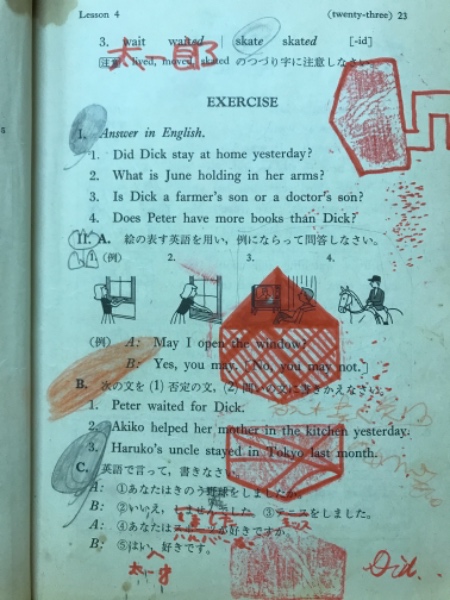 Lesson 4
(twenty-three) 23
3. wait waited | skate skated [-id]
太一郎
注意 lived, moved, skated のつづり字に注意しなさい。
EXERCISE
I. Answer in English.
1. Did Dick stay at home yesterday?
2. What is June holding in her arms?
3. Is Dick a farmer's son or a doctor's son?
4. Does Peter have more books than Dick?
II. A. 絵の表す英語を用い, 例にならって問答しなさい。
1. (例) 2. 3. 4.
(例) A: May I open the window?
B: Yes, you may. [No, you may not.]
B. 次の文を (1) 否定の文, (2) 問いの文に書きかえなさい。
1. Peter waited for Dick.
2. Akiko helped her mother in the kitchen yesterday.
3. Haruko's uncle stayed in Tokyo last month.
C. 英語で言って, 書きなさい。
A: ①あなたはきのう野球をしましたか。
B: ②いいえ, しませんでした。 ③テニスをしました。
A: ④あなたは が好きですか。
B: ⑤はい, 好きです。
Did.